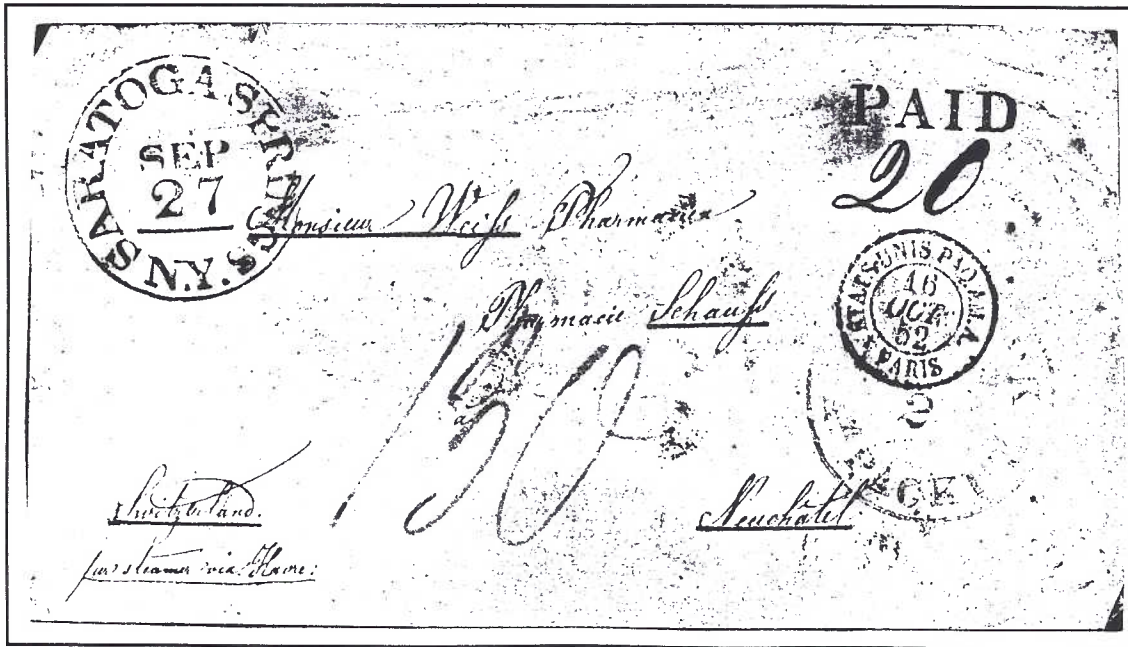 SARATOGA SPRINGS N.Y.
SEP
27
PAID
20
Monsieur Weiss Pharmacien
Pharmacie Schauss
ETATS-UNIS PAQ. AM. A
16
OCT.
52
PARIS
2
130
à
Neuchâtel
Switzerland.
per steamer via Havre: